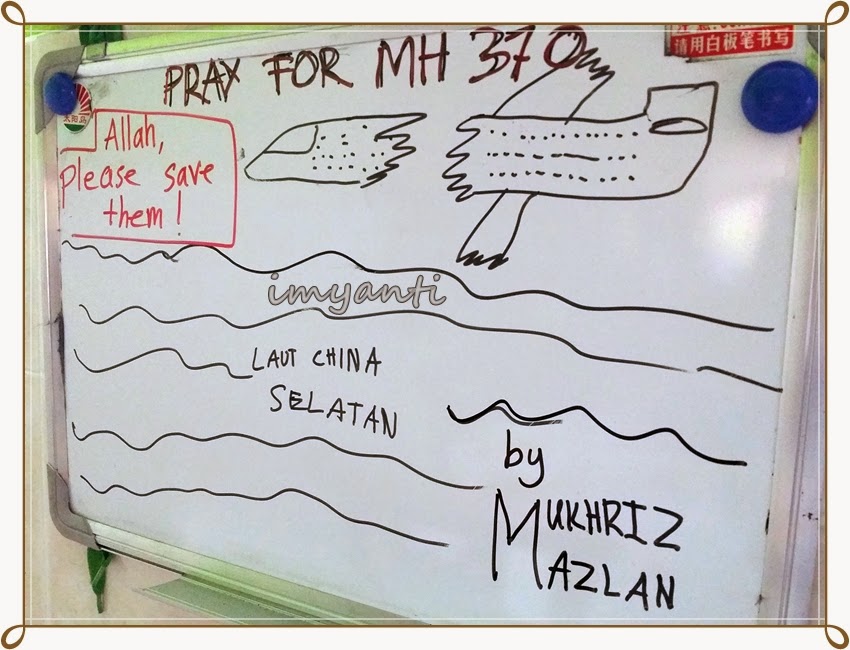 PRAY FOR MH 370
请用白板笔书写
太阳鸟
Allah,
Please save
them!
imyanti
LAUT CHINA
SELATAN
by
MUKHRIZ
AZLAN